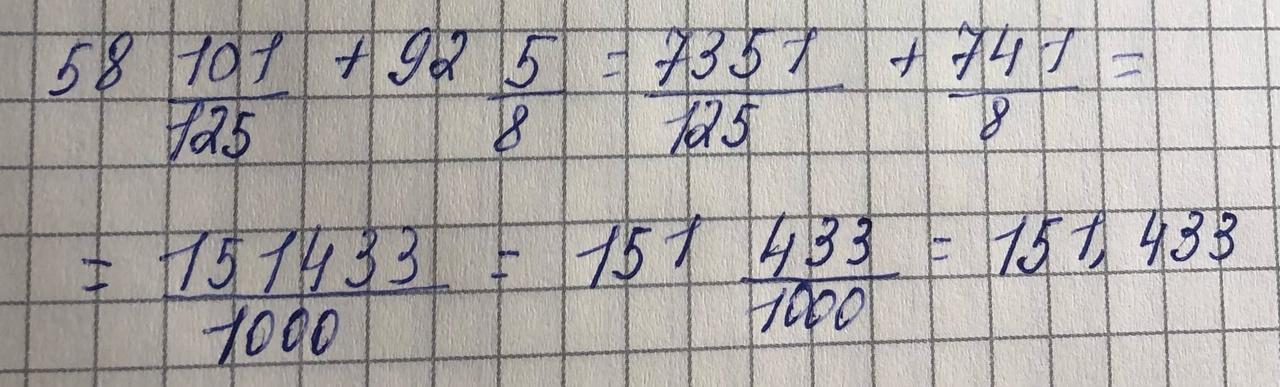 58 101/125 + 92 5/8 = 7351/125 + 741/8 =
= 151433/1000 = 151 433/1000 = 151,433